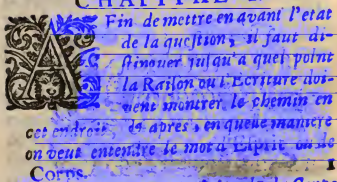 CHAPITRE
AFin de mettre en avant l'etat
de la question, il faut di-
stinguer jusqu'a quel point
la Raison ou l'Ecriture doi-
vent montrer le chemin en
cet endroit, & apres, en quelle maniere
on veut entendre le mot d'Esprit ou de
Corps.